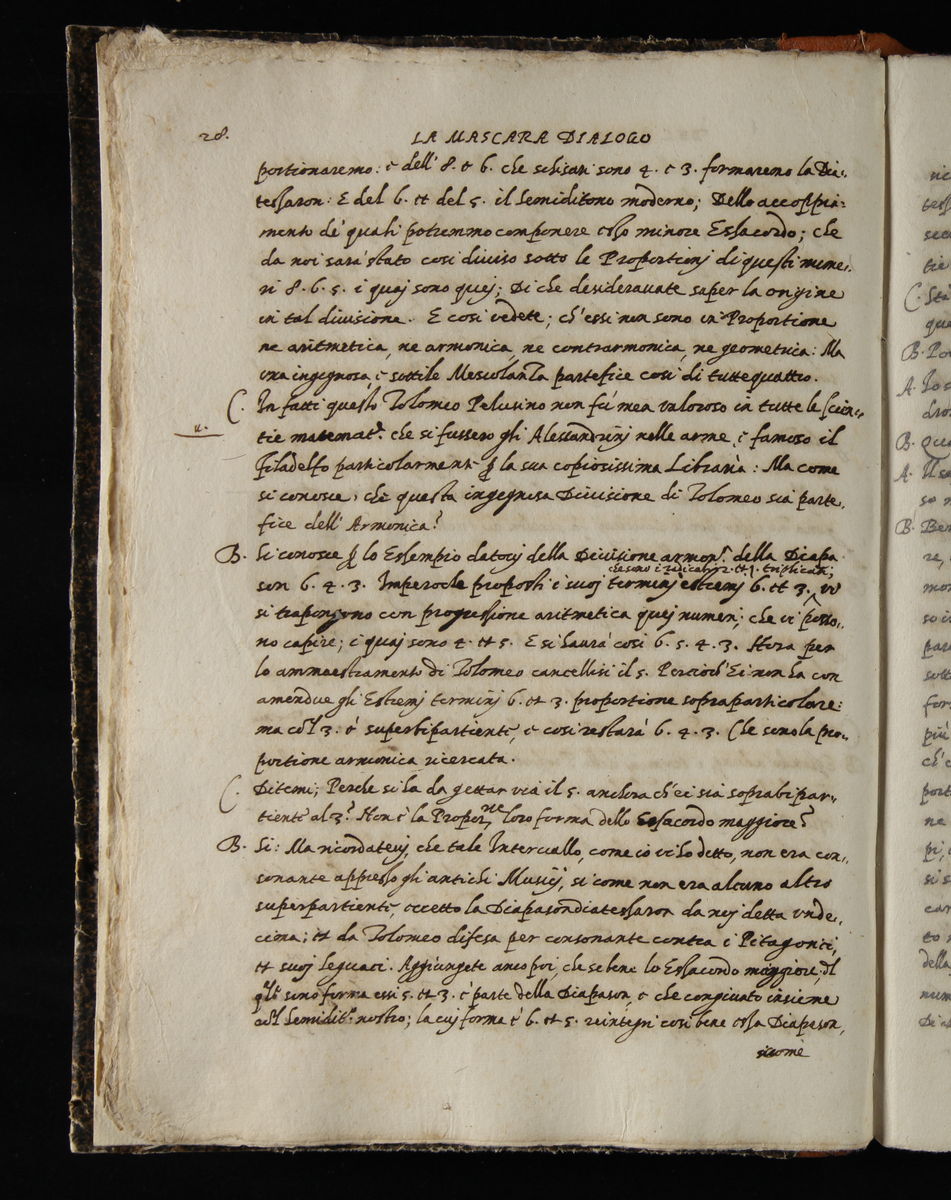 28.
LA MASCARA DIALOGO
portionaremo: e dell' 8. e 6. che schisati sono 4. e 3. formaremo la Dia-
tessaron: E del 6. et del 5. il semiditono moderno; Dello accoppia-
mento de' quali potremmo componere esso minore Essacordo; che
da noi sarà stato così diviso sotto le Proportionj di questi nume-
ri 8. 6. 5. i quaj sono quej; Di che desideravate saper la origine
in tal divisione. E così vedete; ch'essi non sono in Proportione
ne aritmetica, ne armonica, ne contrarmonica, ne geometrica: Ma
una ingegnosa, e sottile Mescolanza partefice così di tutte quattro.
C. In fatti questo Tolomeo Pelusino non fù men valoroso in tutte le scien-
tie matemat.e che si fussero gli Alessandrinj nelle arme, e famoso il
Filadelfo particolarmente per la sua copiosissima Libraria: Ma come
si conosce, che questa ingegnosa Divisione di Tolomeo sia parte-
fice dell' Armonica?
B. Si conosce per lo Essempio datovj della Divisione armon.a della Diapa
son 6. 4. 3. Imperoche proposti i suoj terminj estremj 6. et 3. vi
che sono i radicali 2. et 1. triplicati;
si trapongono con progressione aritmetica quej numeri, che vi posso-
no capire; i quaj sono 4. et 5. E si haurà così 6. 5. 4. 3. Hora per
lo ammaestramento di Tolomeo cancellisi il 5. Percioch' Ei non ha con
amendue gli Estremj terminj 6. et 3. proportione sopraparticolare:
ma col 3. è superbipartiente, e così restarà 6. 4. 3. Che sono la pro-
portione armonica ricercata.
C. Ditemi; Perche si ha da gettar via il 5. anchora ch'ei sia soprabipar-
tiente al 3? Non è la Propor.ne loro forma dello Essacordo maggiore?
B. Si: Ma ricordatevj, che tale Intervallo, come io vi ho detto, non era con-
sonante appresso gli antichi Musicj, si come non era alcuno altro
superpartiente, eccetto la Diapasondiatessaron da noj detta unde-
cima; et da Tolomeo difesa per consonante contra i Pitagorici,
et suoj seguaci. Aggiungete anco poi, che se bene lo Essacordo maggiore, del
qle sono forma essi 5. et 3. è parte della Diapason, e che congiunto insieme
col semidit.o nostro; la cuj forma è 6. et 5. reintegri così bene essa Diapason,
sicome